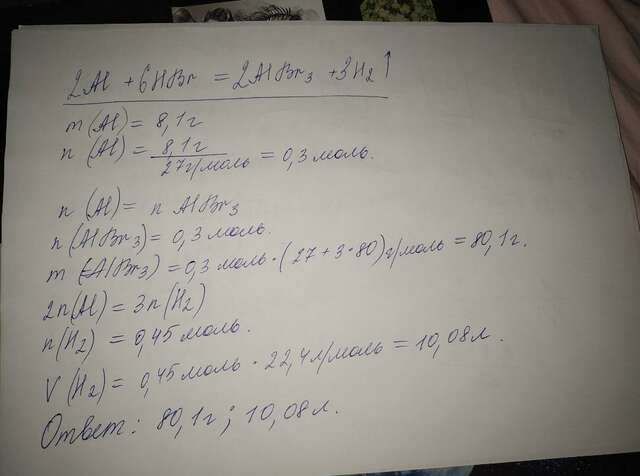 2Al + 6HBr = 2AlBr₃ + 3H₂↑
m (Al) = 8,1г
n (Al) = 8,1г / 27г/моль = 0,3 моль.
n (Al) = n AlBr₃
n (AlBr₃) = 0,3 моль.
m (AlBr₃) = 0,3 моль · (27 + 3·80) г/моль = 80,1г.
2n(Al) = 3n(H₂)
n(H₂) = 0,45 моль.
V (H₂) = 0,45 моль · 22,4 л/моль = 10,08 л.
Ответ: 80,1г ; 10,08 л.